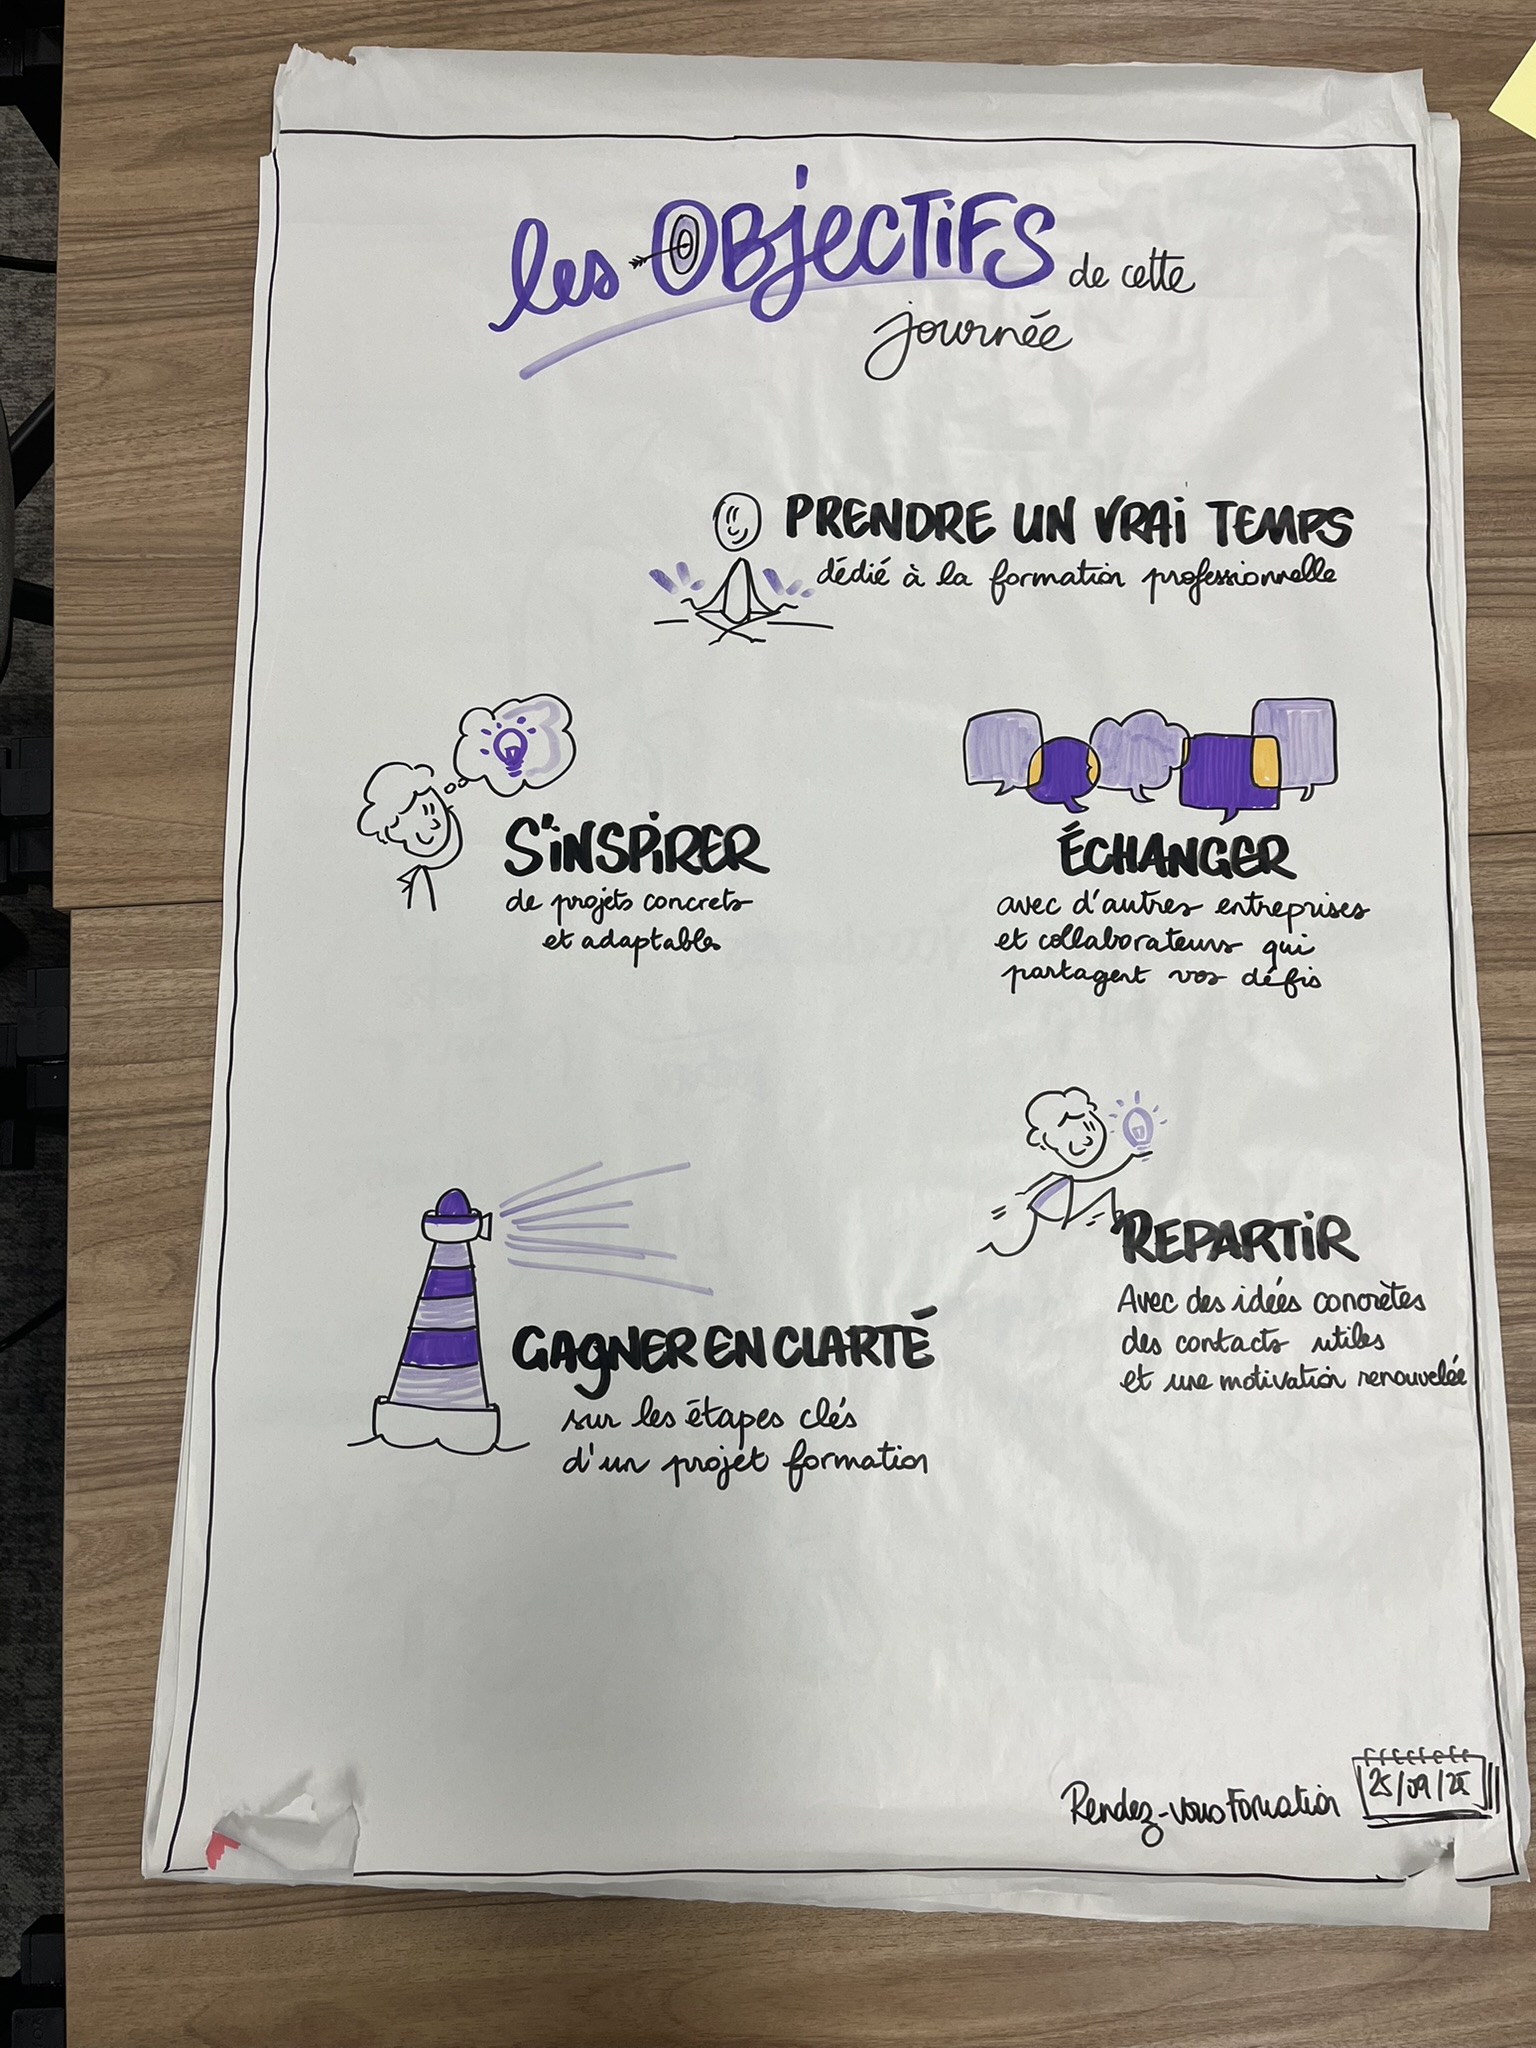 les OBjECTiFS de cette
journée
PRENDRE UN VRAi TEMPS
dédié à la formation professionnelle
S'iNSPiRER
de projets concrets
et adaptables
ÉCHANGER
avec d'autres entreprises
et collaborateurs qui
partagent vos défis
REPARTiR
Avec des idées concrètes
des contacts utiles
et une motivation renouvelée
GAGNER EN CLARTÉ
sur les étapes clés
d'un projet formation
Rendez-vous Formation
25/09/25